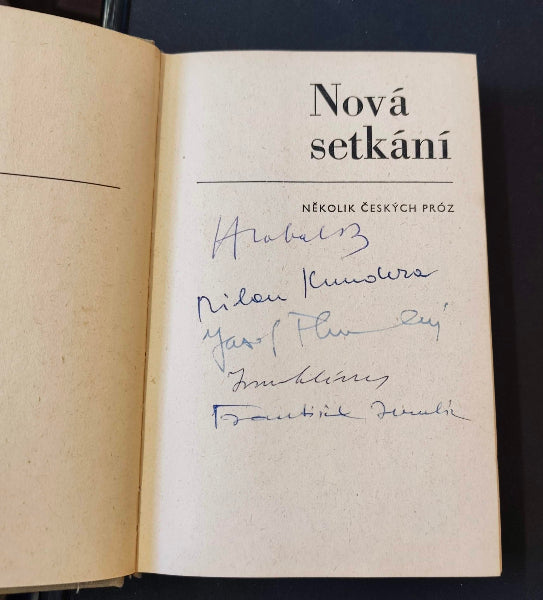 Nová
setkání
NĚKOLIK ČESKÝCH PRÓZ
Hrabal B
Milan Kundera
Josef
František